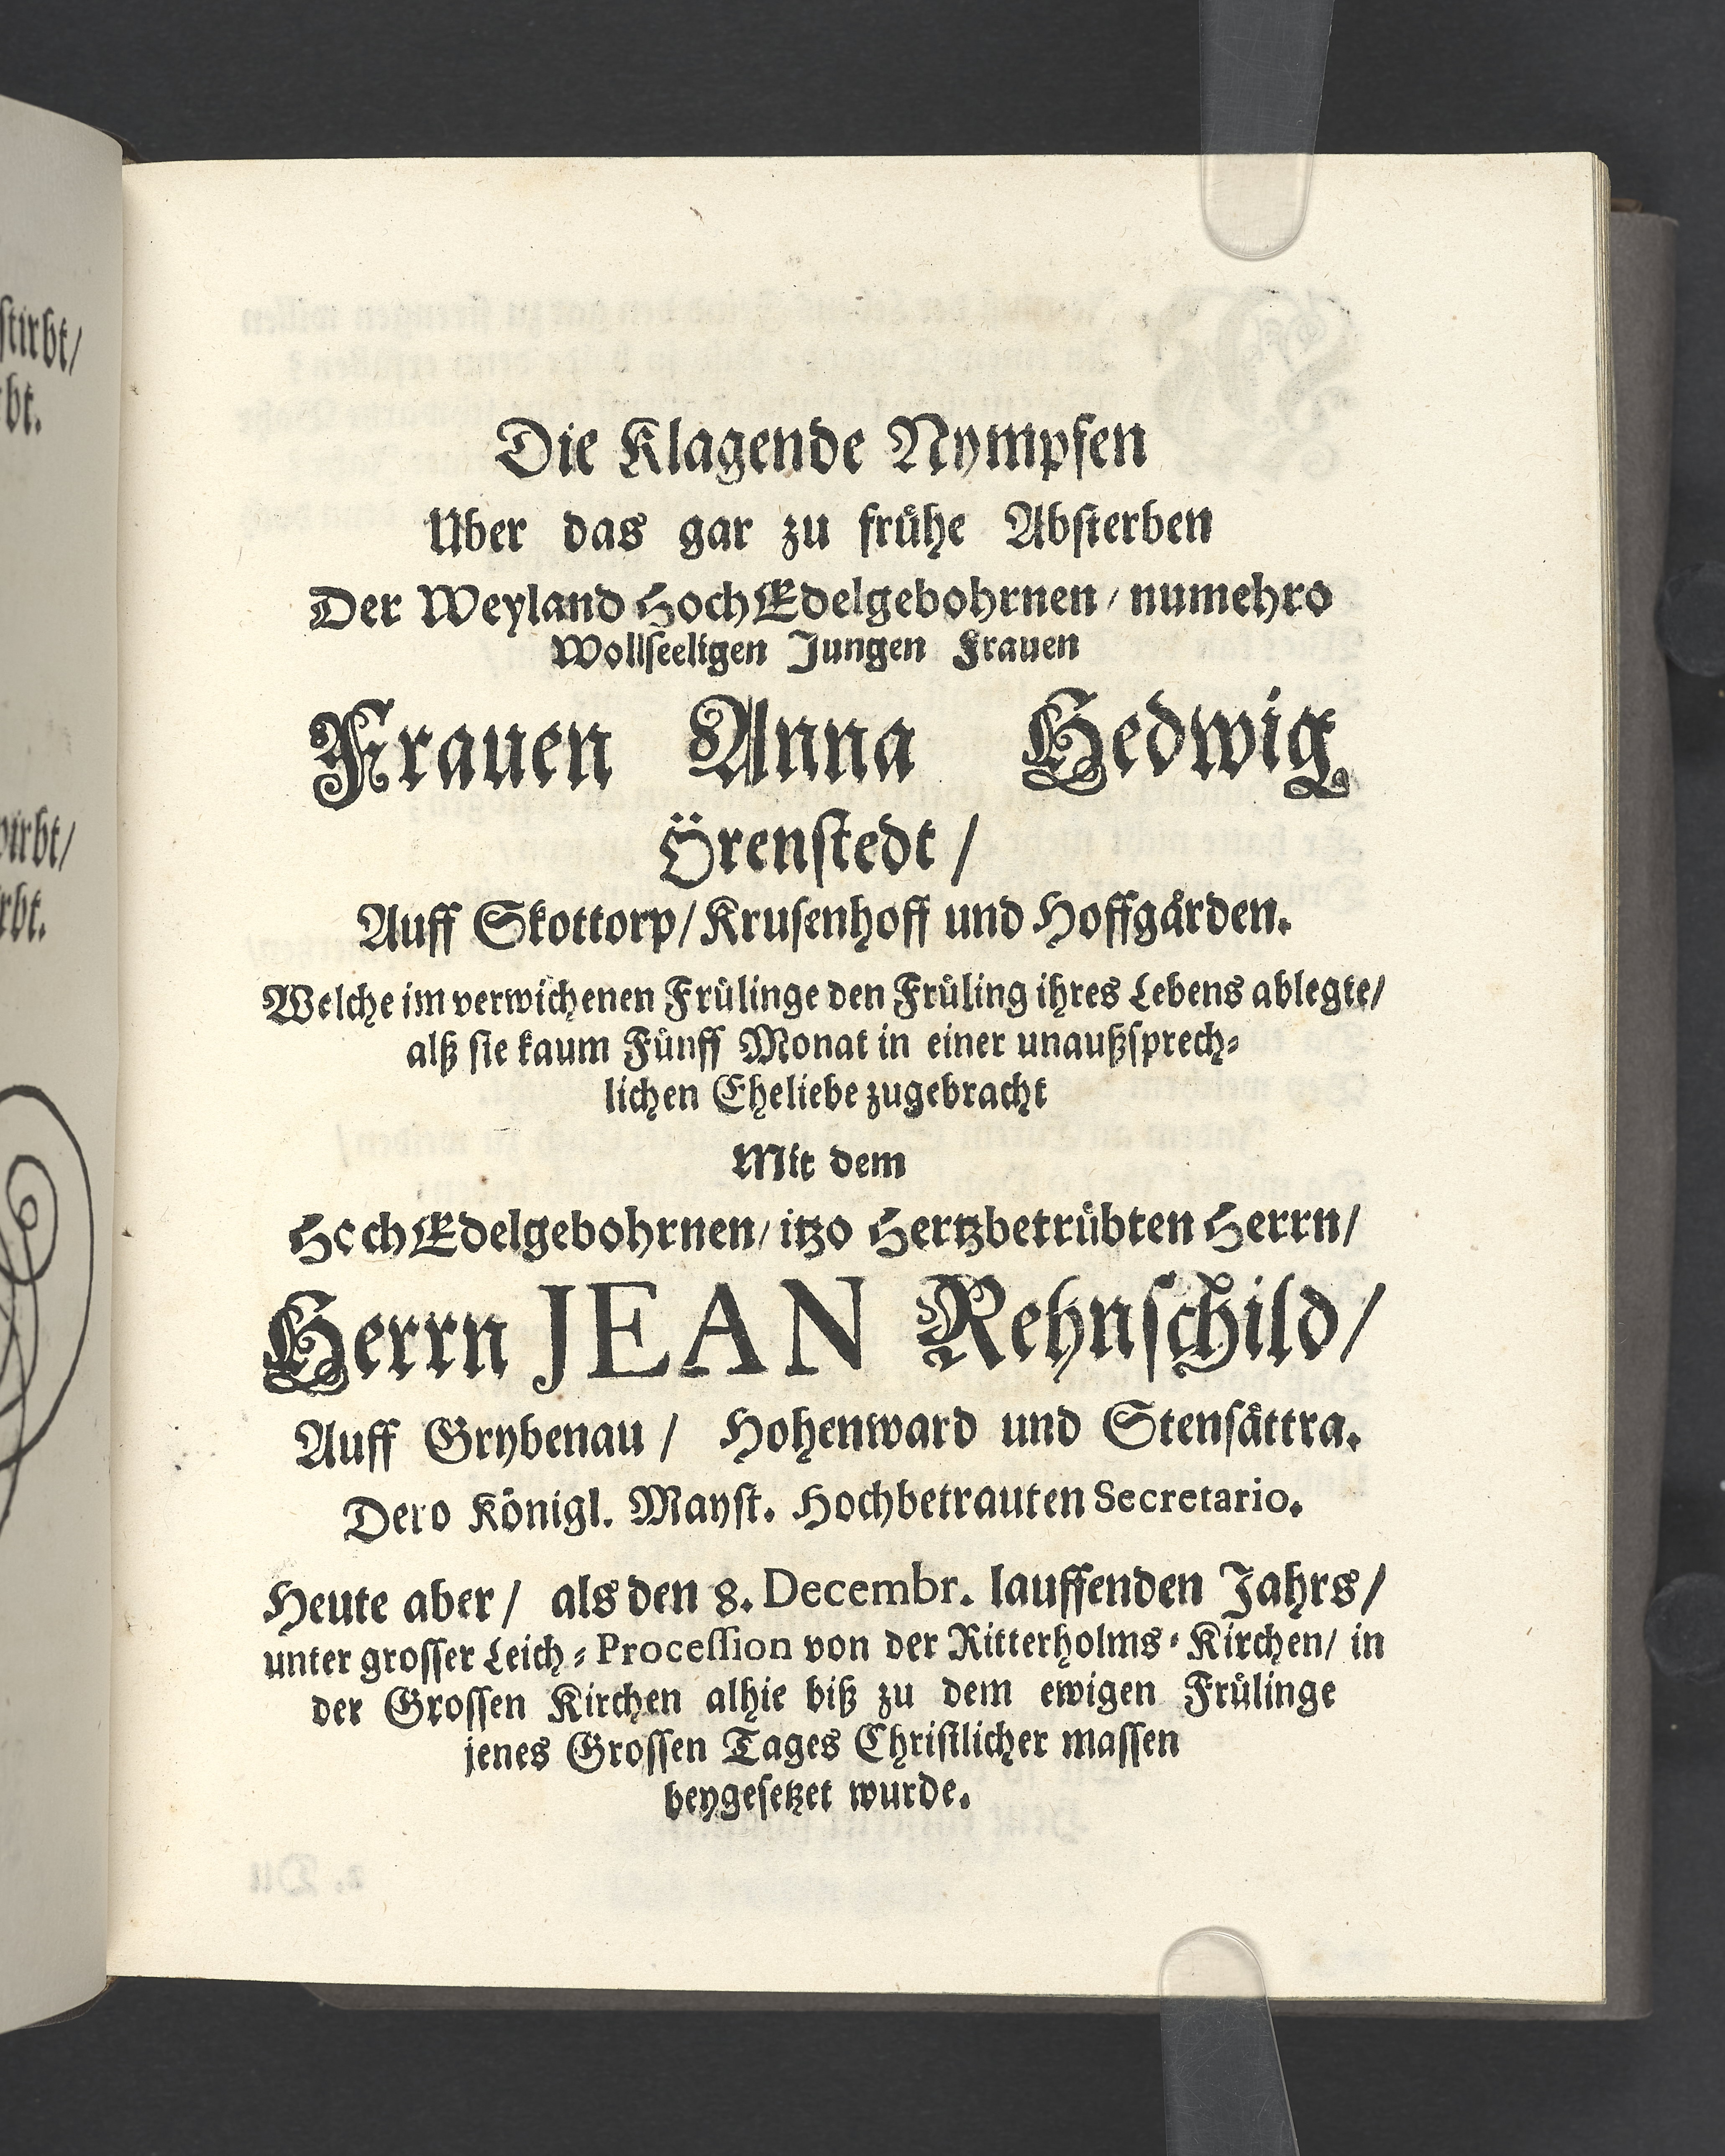 stirbt/
bt.
wirbt/
rbt.
Die Klagende Nympfen
Uber das gar zu frühe Absterben
Der Weyland HochEdelgebohrnen/ numehro
Wollseeligen Jungen Frauen
Frauen Anna Hedwig
Örenstedt/
Auff Skottorp/ Krusenhoff und Hoffgården.
Welche im verwichenen Frülinge den Früling ihres Lebens ablegte/
alß sie kaum Fünff Monat in einer unaußsprech-
lichen Eheliebe zugebracht
Mit dem
HochEdelgebohrnen/ itzo Hertzbetrübten Herrn/
Herrn JEAN Rehnschild/
Auff Grybenau/ Hohenward und Stensättra.
Dero Königl. Mayst. Hochbetrauten Secretario.
Heute aber/ als den 8. Decembr. lauffenden Jahrs/
unter grosser Leich-Procession von der Ritterholms-Kirchen/ in
der Grossen Kirchen alhie biß zu dem ewigen Frülinge
jenes Grossen Tages Christlicher massen
beygesetzet wurde.